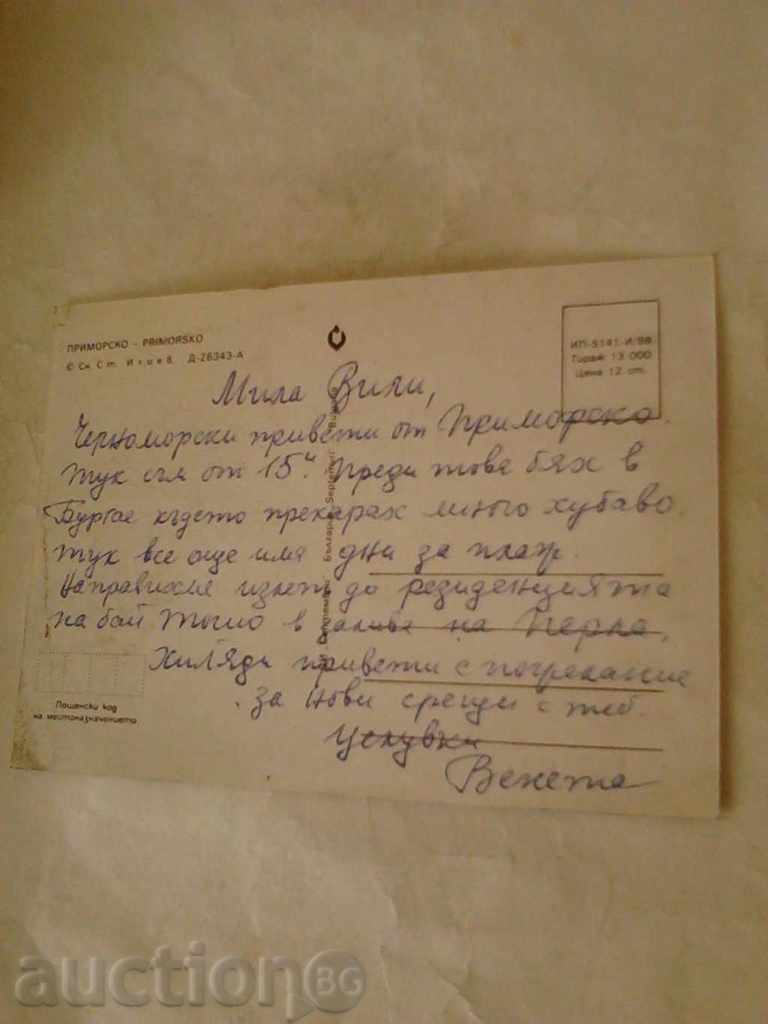 ПРИМОРСКО - PRIMORSKO
© Сн. Ст. Илиев. Д-26343-А
ИП-5141-И/88
Тираж 13 000
Цена 12 ст.
Мила Вили,
Черноморски привети от Приморско.
Тук съм от 15и. Преди това бях в
Бургас където прекарах много хубаво.
Тук все още има дни за плаж.
Направихме излет до резиденцията
на бай Тошо в на Перла,
Хиляди привети с пожелание
за нови срещи с теб.
Целувки
Венета
Септември България Septemvri
Пощенски код
на местоназначението
auctionBG